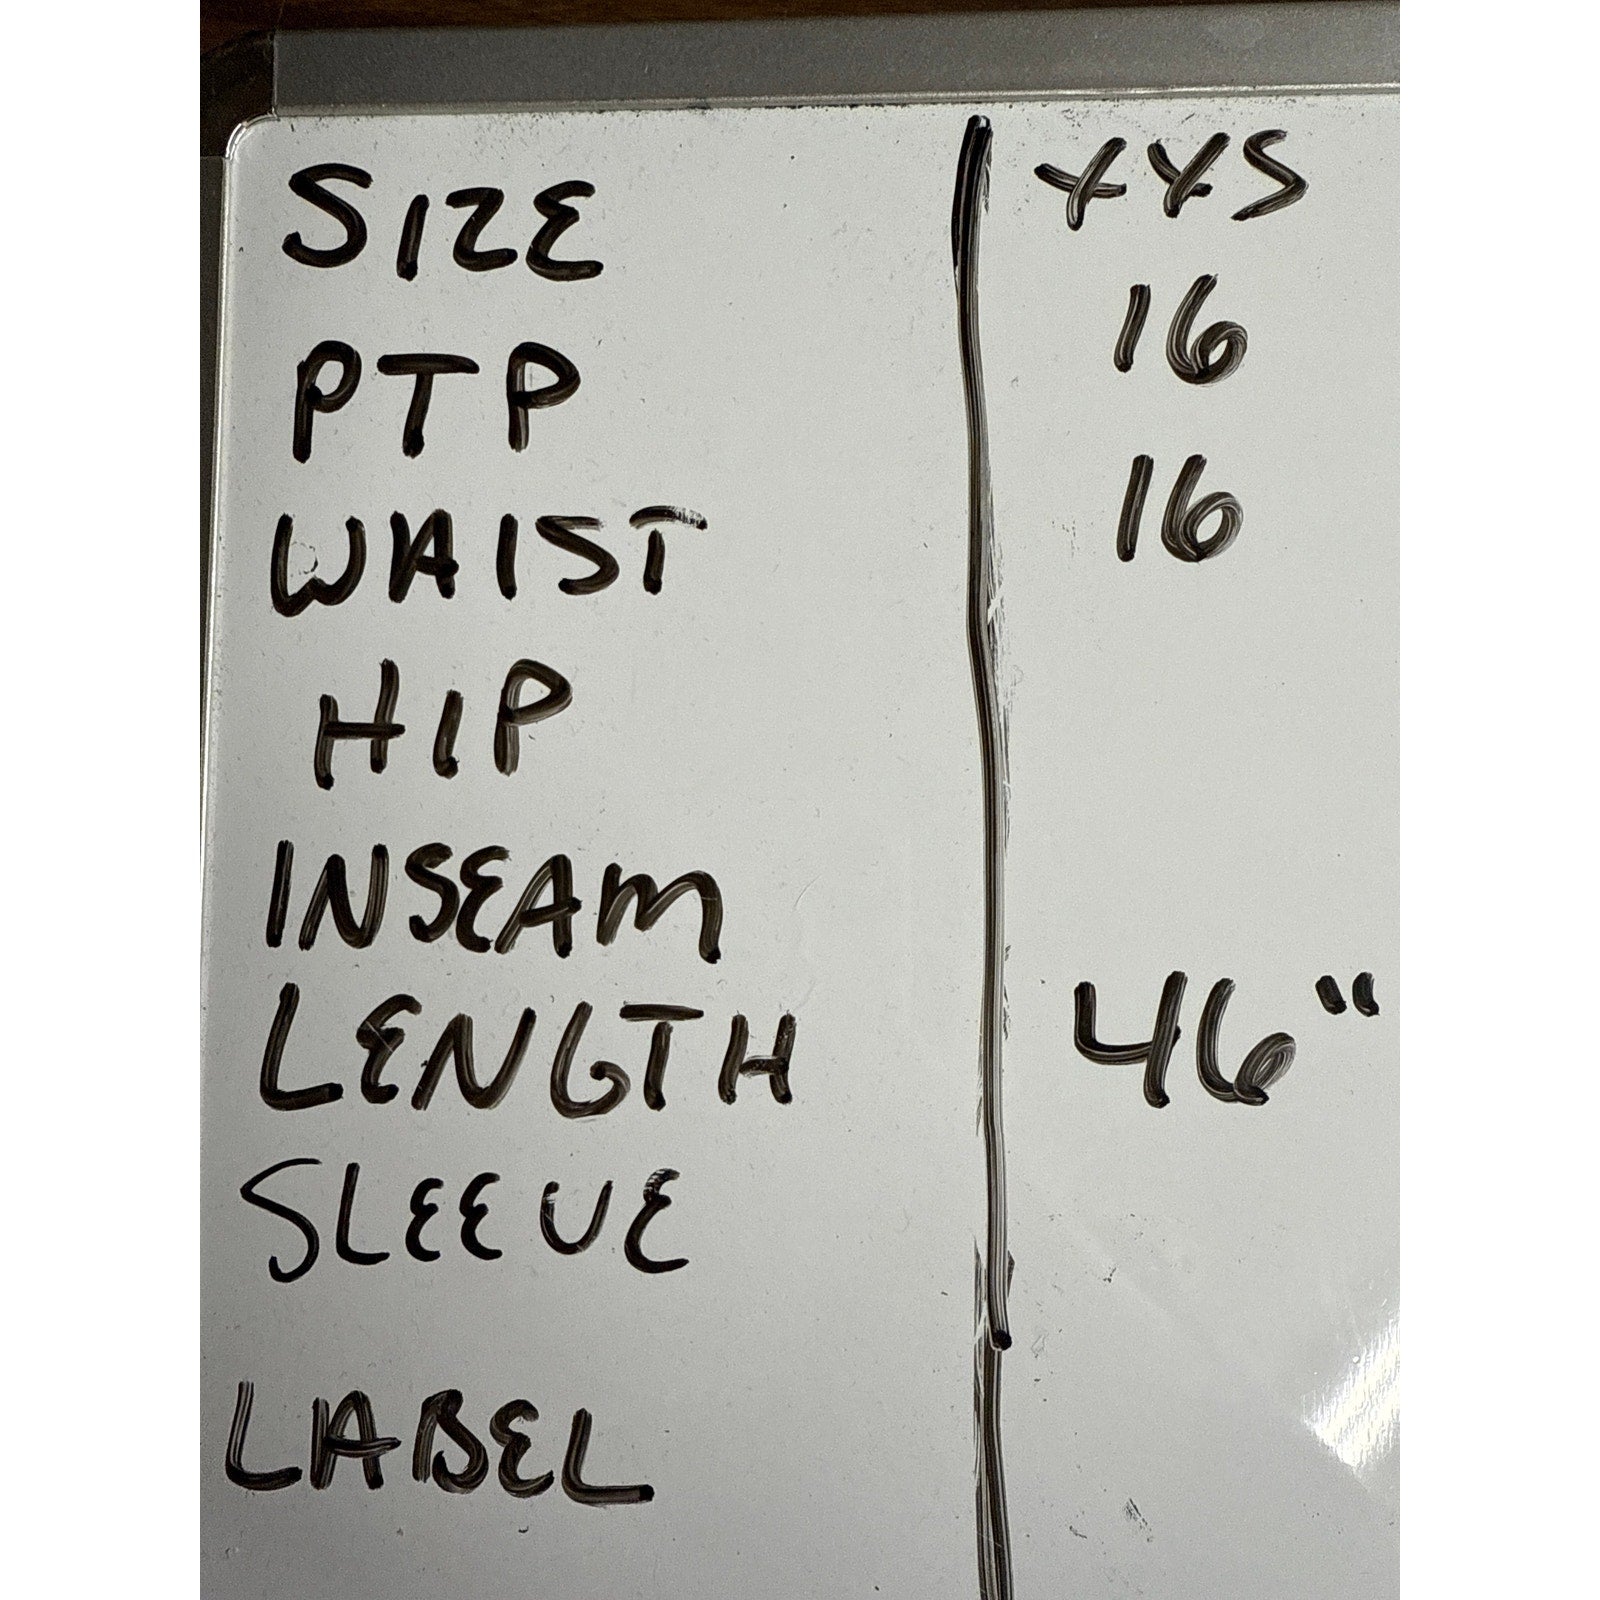 SIZE XXS
PTP 16
WAIST 16
HIP
INSEAM
LENGTH 46"
SLEEVE
LABEL